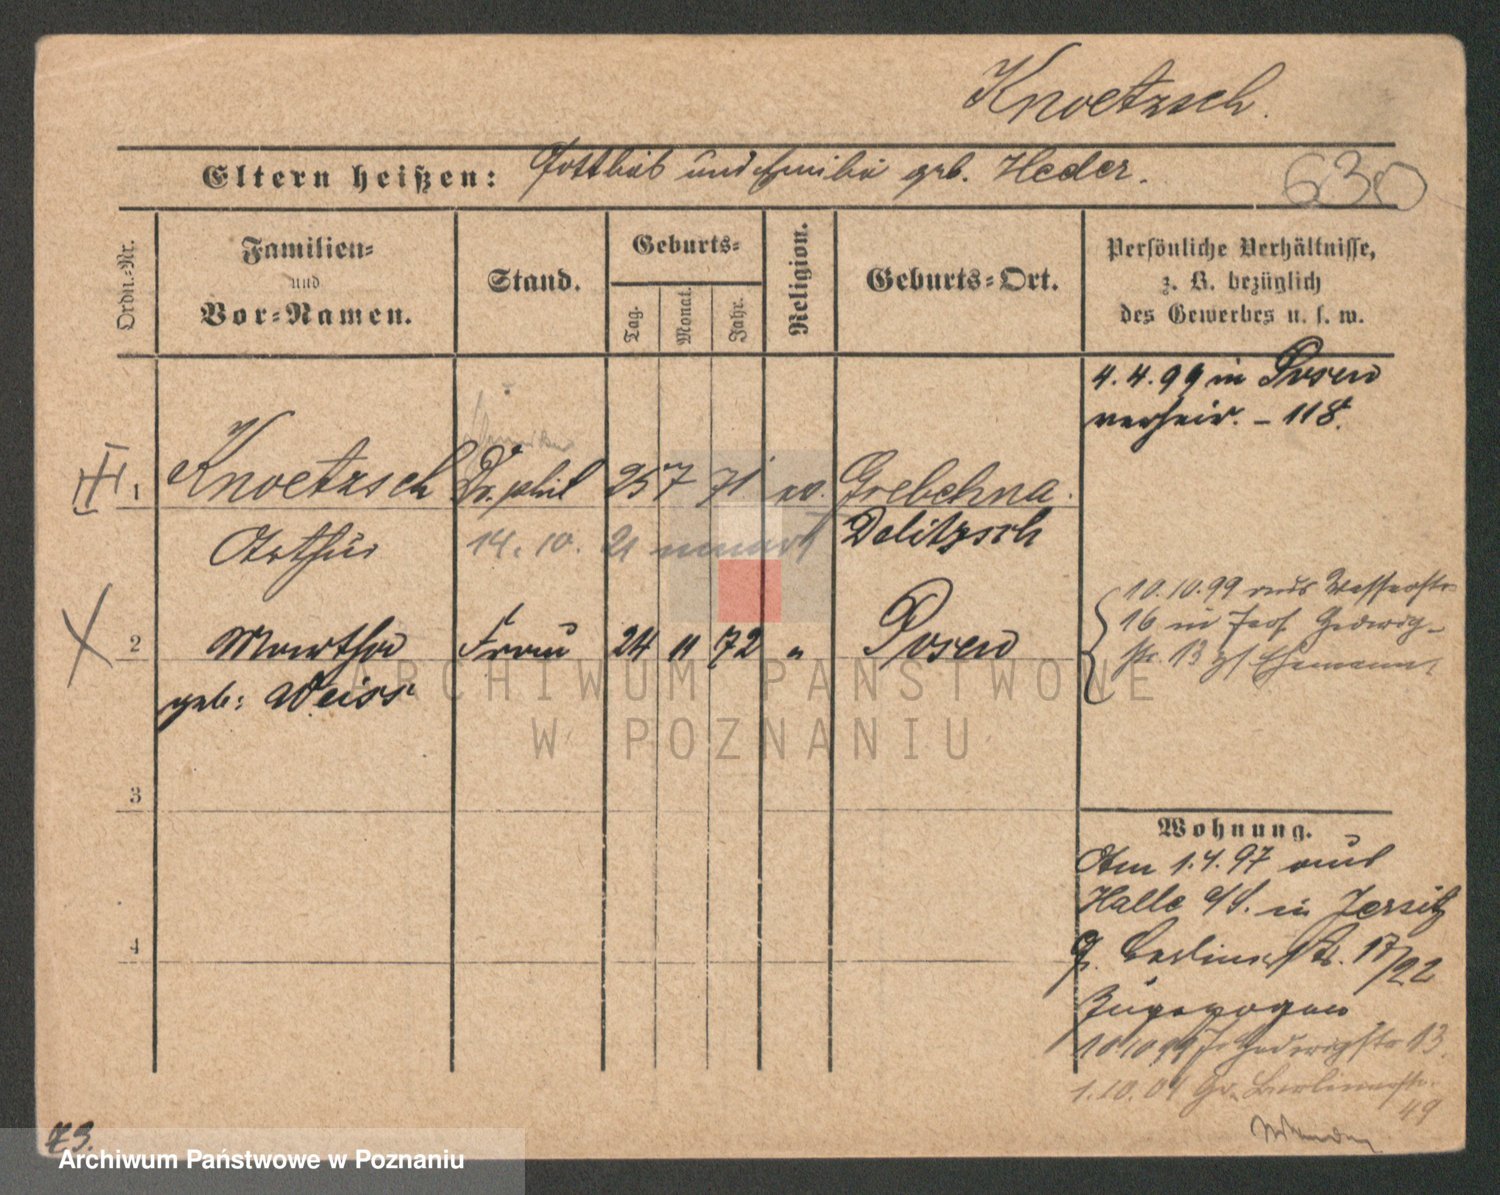 Knoetzsch.
Eltern heißen: Gottlieb und Emilie geb. Heder.
630
Ordn.-Nr.
Familien-
und
Vor-Namen.
Stand.
Geburts-
Tag.
Monat.
Jahr.
Religion.
Geburts-Ort.
Persönliche Verhältnisse,
z. B. bezüglich
des Gewerbes u. s. w.
4.4.99 in Posen
verheir. - 118.
III 1 Knoetzsch Dr. phil 25 7 71 ev. Grebehna.
Arthur 14. 10. 21 Delitzsch
10.10.99 aus
16 in Jers. Hedwig-
str. 13 z/ Ehemann
2 Martha Frau 24 11 72 " Posen
geb: Weiss
3
4
Wohnung.
Am 1.4.97 aus
Halle a/S. in Jersitz
Gr. Berlinerstr. 17/22
Zugezogen
10.10.99 J. Hedwigstr 13.
1.10.04 Gr. Berlinerstr.
49
73.
ARCHIWUM PAŃSTWOWE
W POZNANIU
Archiwum Państwowe w Poznaniu